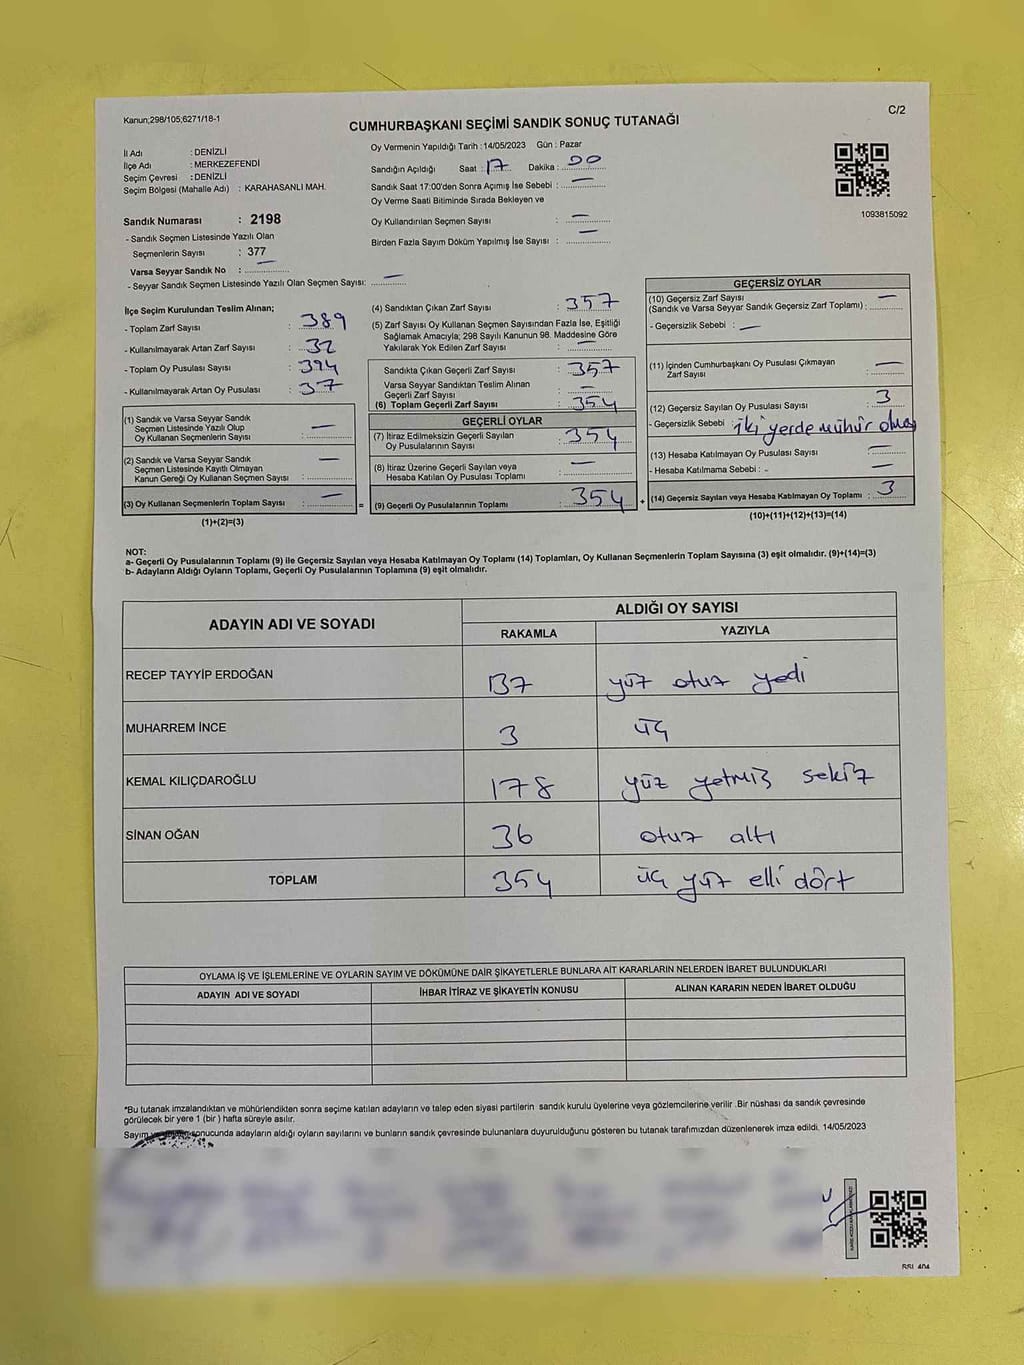 Kanun;298/105;6271/18-1
C/2
CUMHURBAŞKANI SEÇİMİ SANDIK SONUÇ TUTANAĞI
İl Adı : DENİZLİ
İlçe Adı : MERKEZEFENDİ
Seçim Çevresi : DENİZLİ
Seçim Bölgesi (Mahalle Adı) : KARAHASANLI MAH.
Sandık Numarası : 2198
- Sandık Seçmen Listesinde Yazılı Olan
Seçmenlerin Sayısı : 377
Varsa Seyyar Sandık No : —
- Seyyar Sandık Seçmen Listesinde Yazılı Olan Seçmen Sayısı: —
Oy Vermenin Yapıldığı Tarih :14/05/2023 Gün : Pazar
Sandığın Açıldığı Saat : 17 Dakika : 00
Sandık Saat 17:00'den Sonra Açımış İse Sebebi : —
Oy Verme Saati Bitiminde Sırada Bekleyen ve
Oy Kullandırılan Seçmen Sayısı : —
Birden Fazla Sayım Döküm Yapılmış İse Sayısı : —
1093815092
İlçe Seçim Kurulundan Teslim Alınan;
- Toplam Zarf Sayısı : 389
- Kullanılmayarak Artan Zarf Sayısı : 32
- Toplam Oy Pusulası Sayısı : 394
- Kullanılmayarak Artan Oy Pusulası : 37
(1) Sandık ve Varsa Seyyar Sandık
Seçmen Listesinde Yazılı Olup
Oy Kullanan Seçmenlerin Sayısı : —
(2) Sandık ve Varsa Seyyar Sandık
Seçmen Listesinde Kayıtlı Olmayan
Kanun Gereği Oy Kullanan Seçmen Sayısı : —
(3) Oy Kullanan Seçmenlerin Toplam Sayısı : — =
(1)+(2)=(3)
(4) Sandıktan Çıkan Zarf Sayısı : 357
(5) Zarf Sayısı Oy Kullanan Seçmen Sayısından Fazla İse, Eşitliği
Sağlamak Amacıyla; 298 Sayılı Kanunun 98. Maddesine Göre
Yakılarak Yok Edilen Zarf Sayısı : —
Sandıkta Çıkan Geçerli Zarf Sayısı : 357
Varsa Seyyar Sandıktan Teslim Alınan
Geçerli Zarf Sayısı : —
(6) Toplam Geçerli Zarf Sayısı : 354
GEÇERLİ OYLAR
(7) İtiraz Edilmeksizin Geçerli Sayılan
Oy Pusulalarının Sayısı : 354
(8) İtiraz Üzerine Geçerli Sayılan veya
Hesaba Katılan Oy Pusulası Toplamı : —
(9) Geçerli Oy Pusulalarının Toplamı : 354 +
GEÇERSİZ OYLAR
(10) Geçersiz Zarf Sayısı
(Sandık ve Varsa Seyyar Sandık Geçersiz Zarf Toplamı) : —
- Geçersizlik Sebebi : —
(11) İçinden Cumhurbaşkanı Oy Pusulası Çıkmayan
Zarf Sayısı : —
(12) Geçersiz Sayılan Oy Pusulası Sayısı : 3
- Geçersizlik Sebebi : iki yerde mühür olması
(13) Hesaba Katılmayan Oy Pusulası Sayısı : —
- Hesaba Katılmama Sebebi : - —
(14) Geçersiz Sayılan veya Hesaba Katılmayan Oy Toplamı : 3
(10)+(11)+(12)+(13)=(14)
NOT:
a- Geçerli Oy Pusulalarının Toplamı (9) ile Geçersiz Sayılan veya Hesaba Katılmayan Oy Toplamı (14) Toplamları, Oy Kullanan Seçmenlerin Toplam Sayısına (3) eşit olmalıdır. (9)+(14)=(3)
b- Adayların Aldığı Oyların Toplamı, Geçerli Oy Pusulalarının Toplamına (9) eşit olmalıdır.
ADAYIN ADI VE SOYADI
ALDIĞI OY SAYISI
RAKAMLA YAZIYLA
RECEP TAYYİP ERDOĞAN 137 yüz otuz yedi
MUHARREM İNCE 3 üç
KEMAL KILIÇDAROĞLU 178 yüz yetmiş sekiz
SİNAN OĞAN 36 otuz altı
TOPLAM 354 üç yüz elli dört
OYLAMA İŞ VE İŞLEMLERİNE VE OYLARIN SAYIM VE DÖKÜMÜNE DAİR ŞİKAYETLERLE BUNLARA AİT KARARLARIN NELERDEN İBARET BULUNDUKLARI
ADAYIN ADI VE SOYADI İHBAR İTİRAZ VE ŞİKAYETİN KONUSU ALINAN KARARIN NEDEN İBARET OLDUĞU
*Bu tutanak imzalandıktan ve mühürlendikten sonra seçime katılan adayların ve talep eden siyasi partilerin sandık kurulu üyelerine veya gözlemcilerine verilir .Bir nüshası da sandık çevresinde
görülecek bir yere 1 (bir ) hafta süreyle asılır.
Sayım sonucunda adayların aldığı oyların sayılarını ve bunların sandık çevresinde bulunanlara duyurulduğunu gösteren bu tutanak tarafımızdan düzenlenerek imza edildi. 14/05/2023